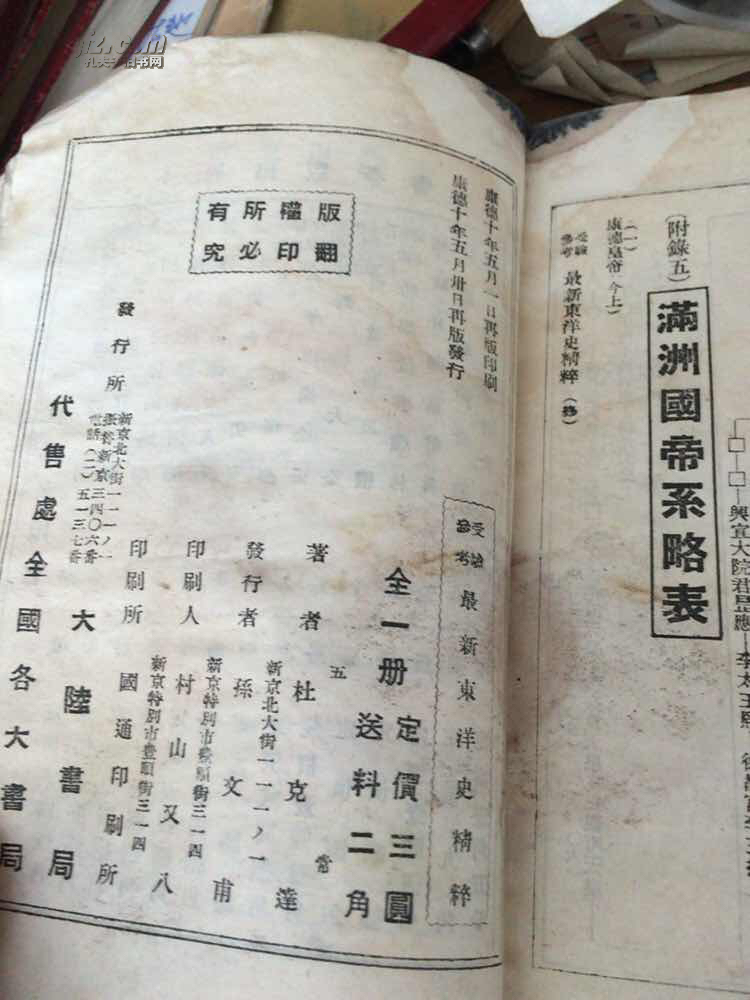 (附錄五)
滿洲國帝系略表
(一)
康德皇帝(今上)
受驗參考 最新東洋史精粹 (終)
版權所有
翻印必究
康德十年五月一日再版印刷
康德十年五月卅日再版發行
受驗參考 最新東洋史精粹
全一册 定價三圓
送料二角
著者 杜克達
新京北大街一一一ノ一
發行者 孫文甫
新京特別市豊順街三一四
印刷人 村山又八
新京特別市豊順街三一四
印刷所 國通印刷所
發行所 大陸書局
新京北大街一一一ノ一
振替新京三四〇六番
電話(二)五一三七番
代售處 全國各大書局
孔夫子旧书网